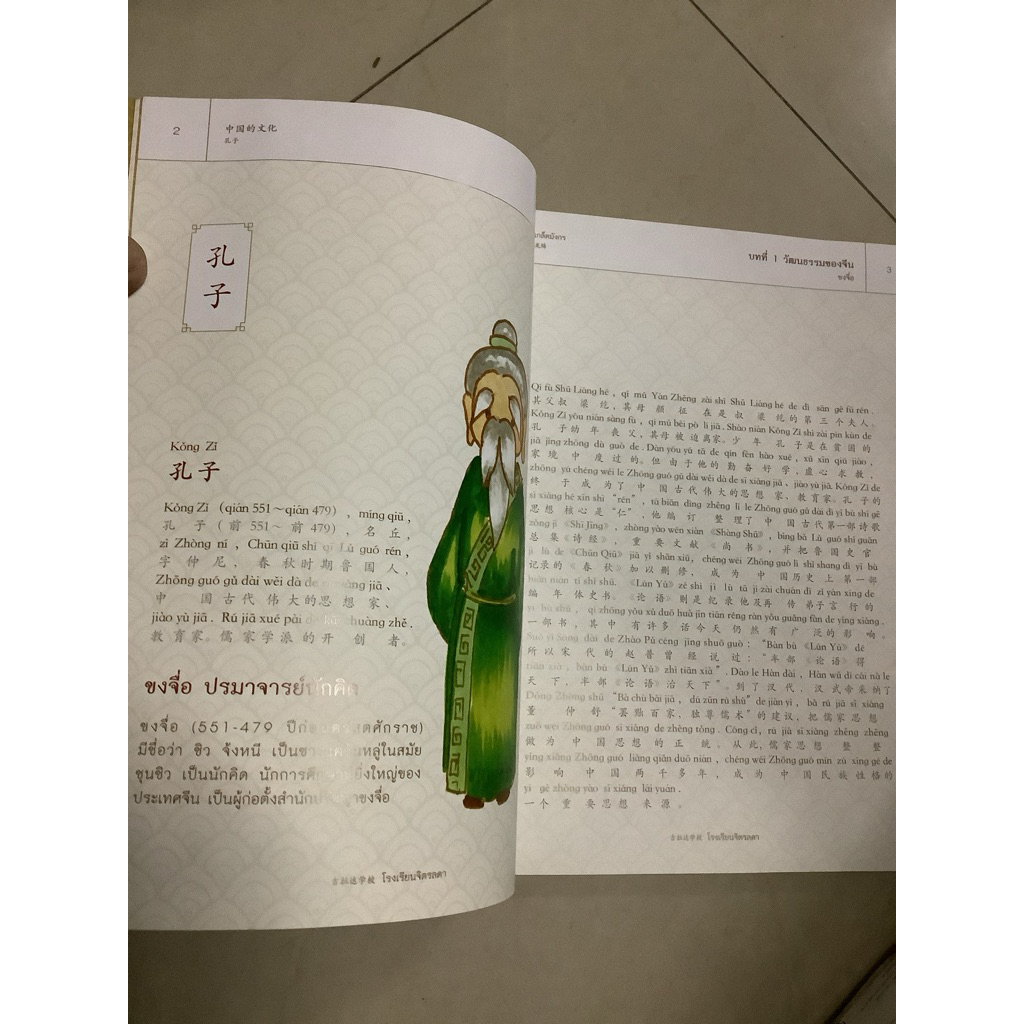 2
中国的文化
孔子
孔
子
Kǒng Zǐ
孔子
Kǒng Zǐ (qián 551~qián 479) , míng qiū ,
孔 子 (前 551~ 前 479) , 名 丘,
zì Zhòng ní , Chūn qiū shí qī Lǔ guó rén ,
字 仲 尼 、 春 秋 时 期 鲁 国 人 ,
Zhōng guó gǔ dài wěi dà de sī xiǎng jiā 、
中 国 古 代 伟 大 的 思 想 家 、
jiào yù jiā . Rú jiā xué pài de kāi chuàng zhě .
教 育 家。 儒 家 学 派 的 开 创 者 。
ขงจื่อ ปรมาจารย์นักคิด
ขงจื่อ (551-479 ปีก่อนคริสตศักราช)
มีชื่อว่า ชิว จ้งหนี เป็นชาวแคว้นหลู่ในสมัย
ชุนชิว เป็นนักคิด นักการศึกษายิ่งใหญ่ของ
ประเทศจีน เป็นผู้ก่อตั้งสำนักปรัชญาขงจื่อ
吉拉达学校 โรงเรียนจิตรลดา
เกล็ดมังกร
บทที่ 1 วัฒนธรรมของจีน
ขงจื่อ
3
Qí fù Shū Liáng hé , qí mǔ Yán Zhēng zài shì Shū Liáng hé de dì sān gè fū rén .
其 父 叔 梁 纥, 其 母 颜 征 在 是 叔 梁 纥 的 第 三 个 夫 人 。
Kǒng Zǐ yòu nián sàng fù , qí mǔ bèi pò lí jiā . Shào nián Kǒng Zǐ shì zài pín kùn de
孔 子 幼 年 丧 父, 其 母 被 迫 离 家。 少 年 孔 子 是 在 贫 困 的
jiā jìng zhōng dù guò de . Dàn yóu yú tā de qín fèn hào xué , xū xīn qiú jiào ,
家 境 中 度 过 的。 但 由 于 他 的 勤 奋 好 学, 虚 心 求 教 ,
zhōng yú chéng wéi le Zhōng guó gǔ dài wěi dà de sī xiǎng jiā 、 jiào yù jiā. Kǒng Zǐ de
终 于 成 为 了 中 国 古 代 伟 大 的 思 想 家、 教 育 家。 孔 子 的
sī xiǎng hé xīn shì "rén" , tā biān dìng zhěng lǐ le Zhōng guó gǔ dài dì yī bù shī gē
思 想 核 心 是 "仁" , 他 编 订 整 理 了 中 国 古 代 第 一 部 诗 歌
zǒng jí 《Shī Jīng》 , zhòng yào wén xiàn 《Shàng Shū》 , bìng bǎ Lǔ guó shǐ guān
总 集《诗 经》, 重 要 文 献 《尚 书》, 并 把 鲁 国 史 官
jì lù de 《Chūn Qiū》 jiā yǐ shān xiū , chéng wéi Zhōng guó lì shǐ shang dì yī bù
记 录 的 《春 秋》 加 以 删 修, 成 为 中 国 历 史 上 第 一 部
biān nián tǐ shǐ shū. 《Lún Yǔ》 zé shì jì lù tā jí zài chuán dì zǐ yán xíng de
编 年 体 史 书。《论 语》则 是 纪 录 他 及 再 传 弟 子 言 行 的
yī bù shū , qí zhōng yǒu xǔ duō huà jīn tiān réng rán yǒu guǎng fàn de yǐng xiǎng.
一 部 书, 其 中 有 许 多 话 今 天 仍 然 有 广 泛 的 影 响 。
Suǒ yǐ Sòng dài de Zhào Pǔ céng jīng shuō guò : "Bàn bù 《Lún Yǔ》 dé
所 以 宋 代 的 赵 普 曾 经 说 过 : "半 部 《论 语》 得
tiān xià , bàn bù 《Lún Yǔ》 zhì tiān xià" . Dào le Hàn dài , Hàn wǔ dì cǎi nà le
天 下, 半 部《论 语》治 天 下"。 到 了 汉 代, 汉 武 帝 采 纳 了
Dǒng Zhòng shū "Bà chù bǎi jiā , dú zūn rú shù" de jiàn yì , bǎ rú jiā sī xiǎng
董 仲 舒 "罢 黜 百 家, 独 尊 儒 术" 的 建 议, 把 儒 家 思 想
zuò wéi Zhōng guó sī xiǎng de zhèng tǒng . Cóng cǐ , rú jiā sī xiǎng zhěng zhěng
做 为 中 国 思 想 的 正 统 。 从 此, 儒 家 思 想 整 整
yǐng xiǎng Zhōng guó liǎng qiān duō nián , chéng wéi Zhōng guó mín zú xìng gé de
影 响 中 国 两 千 多 年, 成 为 中 国 民 族 性 格 的
yī gè zhòng yào sī xiǎng lái yuán .
一 个 重 要 思 想 来 源 。
吉拉达学校 โรงเรียนจิตรลดา